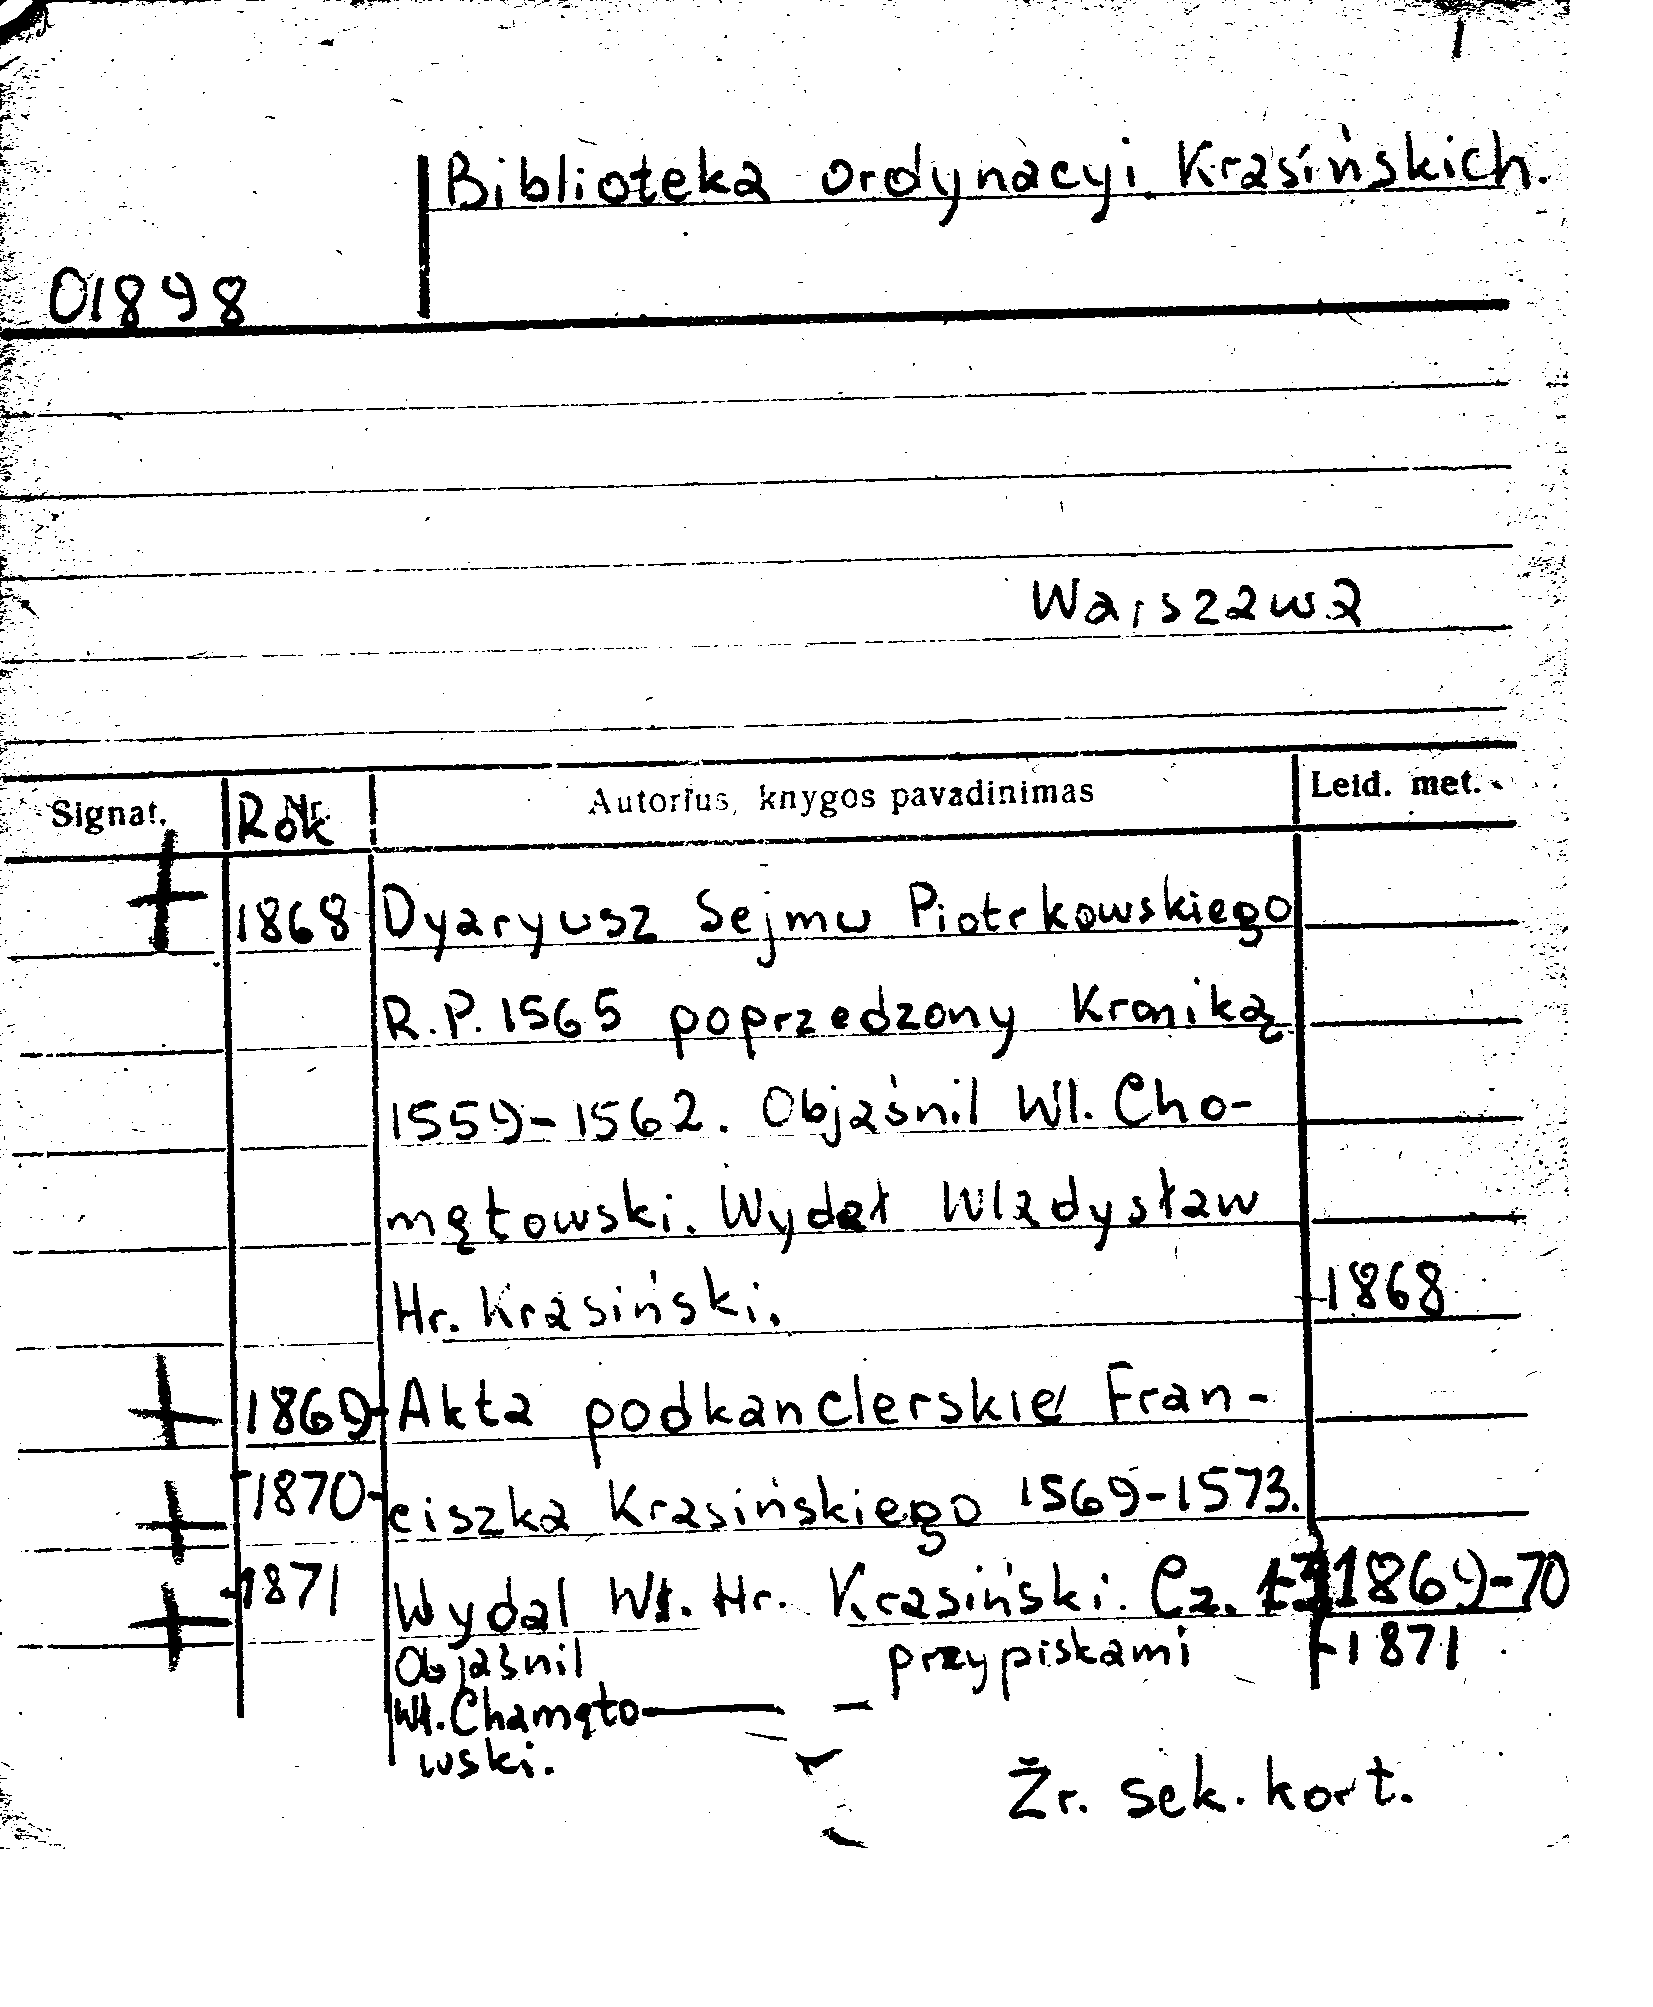 Biblioteka Ordynacyi Krasińskich.
01898
Warszawa
Signat. Nr. Rok Autorius, knygos pavadinimas Leid. met.
1868 Dyaryusz Sejmu Piotrkowskiego
R.P. 1565 poprzedzony Kroniką
1559-1562. Objaśnil Wl. Cho-
mętowski. Wydał Wladysław
Hr. Krasiński. 1868
1869- Akta podkanclerskie Fran-
-1870- ciszka Krasińskiego 1569-1573.
-1871 Wydal Wł. Hr. Krasiński. Cz. 1-3 1869-70
Objaśnil przypiskami -1871
Wł. Chamęto
wski.
Žr. sek. kort.